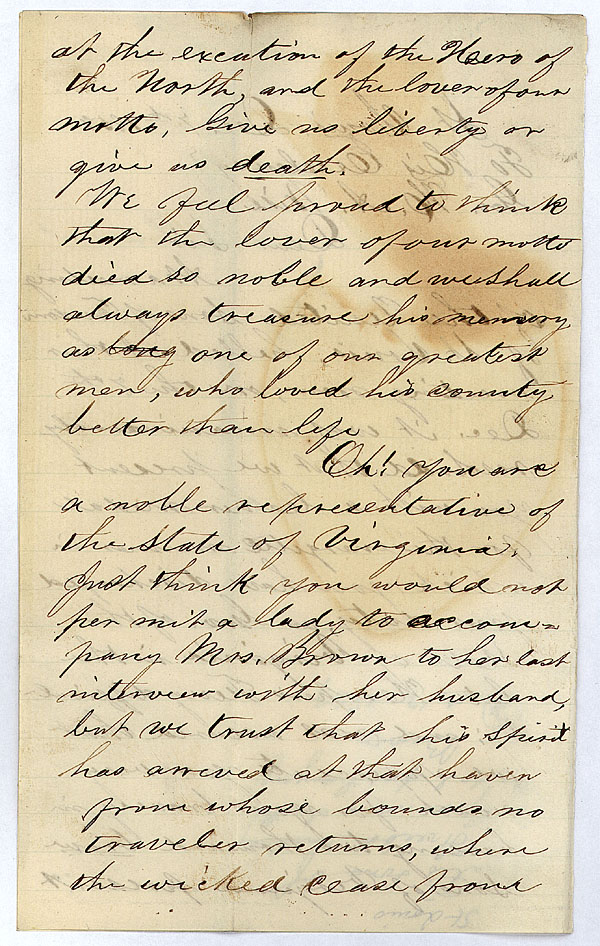 at the execution of the Hero of
the North, and the lover of our
motto, Give us liberty or
give us death.
We feel proud to think
that the lover of our motto
died so noble and we shall
always treasure his memory
as long one of our greatest
men, who loved his country
better than life
Oh! You are
a noble representative of
the state of Virginia.
Just think you would not
permit a lady to accom=
pany Mrs. Brown to her last
interview with her husband,
but we trust that his spirit
has arrived at that haven
from whose bounds no
traveler returns, where
the wicked cease from